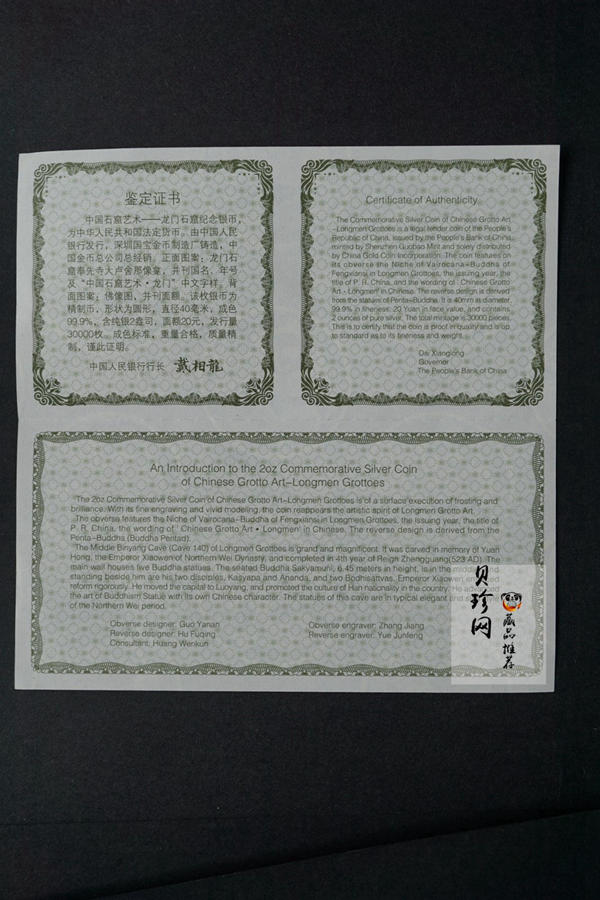 鉴定证书
中国石窟艺术——龙门石窟纪念银币，
为中华人民共和国法定货币。由中国人民
银行发行，深圳国宝金币制造厂铸造，中
国金币总公司总经销。正面图案：龙门石
窟奉先寺大卢舍那像龛，并刊国名、年号
及“中国石窟艺术·龙门”中文字样。背
面图案：佛像图，并刊面额。该枚银币为
精制币，形状为圆形，直径40毫米，成色
99.9%，含纯银2盎司，面额20元，发行量
30000枚。成色标准，重量合格，质量精
制，谨此证明。
中国人民银行行长 戴相龍
Certificate of Authenticity
The Commemorative Silver Coin of Chinese Grotto Art
–Longmen Grottoes is a legal tender coin of the People's
Republic of China, issued by the People's Bank of China,
minted by Shenzhen Guobao Mint and solely distributed
by China Gold Coin Incorporation. The coin features on
its obverse the Niche of Vairocana–Buddha of
Fengxiansi in Longmen Grottoes, the issuing year, the
title of P. R. China, and the wording of ' Chinese Grotto
Art • Longmen' in Chinese. The reverse design is derived
from the statues of Penta–Buddha. It is 40mm in diameter,
99.9% in fineness, 20 Yuan in face value, and contains
2 ounces of pure silver. The total mintage is 30000 pieces.
This is to certify that the coin is proof in quality and is up
to standard as to its fineness and weight.
Dai Xianglong
Governor
The People's Bank of China
An Introduction to the 2oz Commemorative Silver Coin
of Chinese Grotto Art–Longmen Grottoes
The 2oz Commemorative Silver Coin of Chinese Grotto Art–Longmen Grottoes is of a surface execution of frosting and
brilliance. With its fine engraving and vivid modeling, the coin reappears the artistic spirit of Longmen Grotto Art.
The obverse features the Niche of Vairocana–Buddha of Fengxiansi in Longmen Grottoes, the issuing year, the title of
P. R. China, the wording of ' Chinese Grotto Art • Longmen' in Chinese. The reverse design is derived from the
Penta–Buddha (Buddha Pentad).
The Middle Binyang Cave (Cave 140) of Longmen Grottoes is grand and magnificent. It was carved in memory of Yuan
Hong, the Emperor Xiaowen of Northern Wei Dynasty, and completed in 4th year of Reign Zhengguang(523 AD). The
main wall houses five Buddha statues. The seated Buddha Sakyamuni, 6.45 meters in height, is in the middle and
standing beside him are his two disciples, Kasyapa and Ananda, and two Bodhisattvas. Emperor Xiaowen
reform rigorously. He moved the capital to Luoyang, and promoted the culture of Han nationality in the country. He
the art of Buddhism Statue with its own Chinese character. The statues of this cave are in typical elegant and
of the Northern Wei period.
Obverse designer: Guo Yanan
Reverse designer: Hu Fuqing
Consultant: Huang Wenkun
Obverse engraver: Zhang Jiang
Reverse engraver: Yue Junfeng
贝珍网
藏品推荐